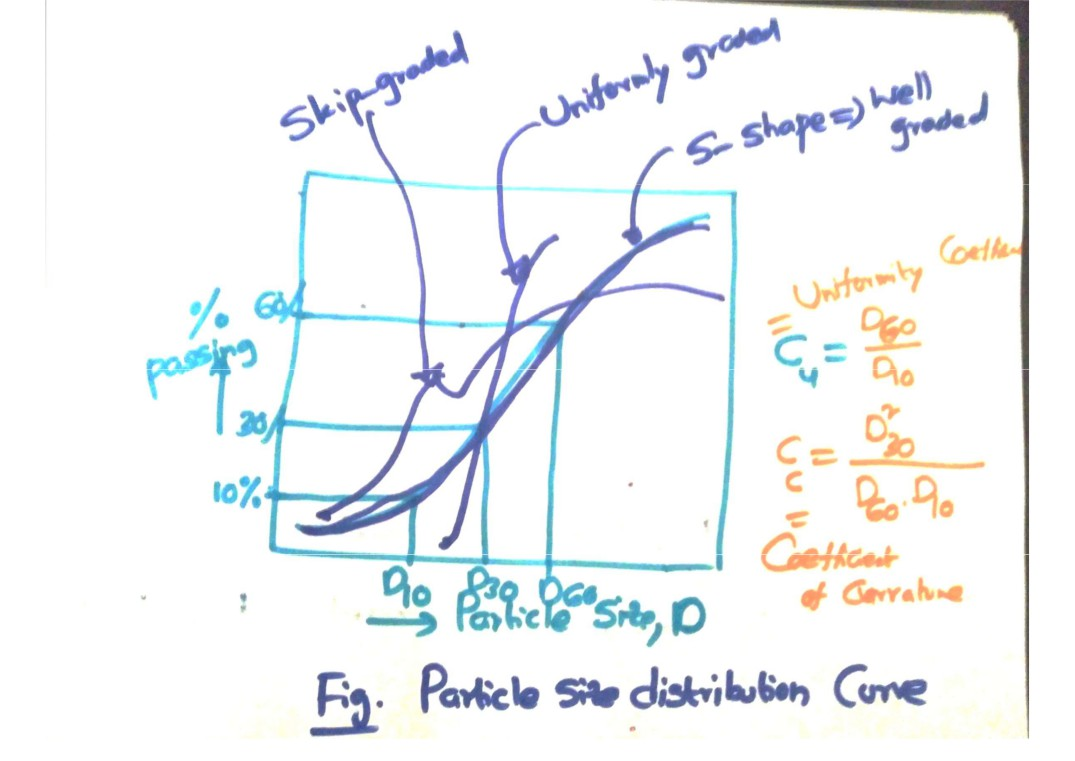 Skip-graded
Uniformly graded
S- shape => well
graded
%
passing
60%
30%
10%
D10 D30 D60
Particle Size, D
= Uniformity
Cu = D60 / D10
Cc = D²30 / D60 . D10
=
Coefficient
of Curvature
Fig. Particle size distribution Curve